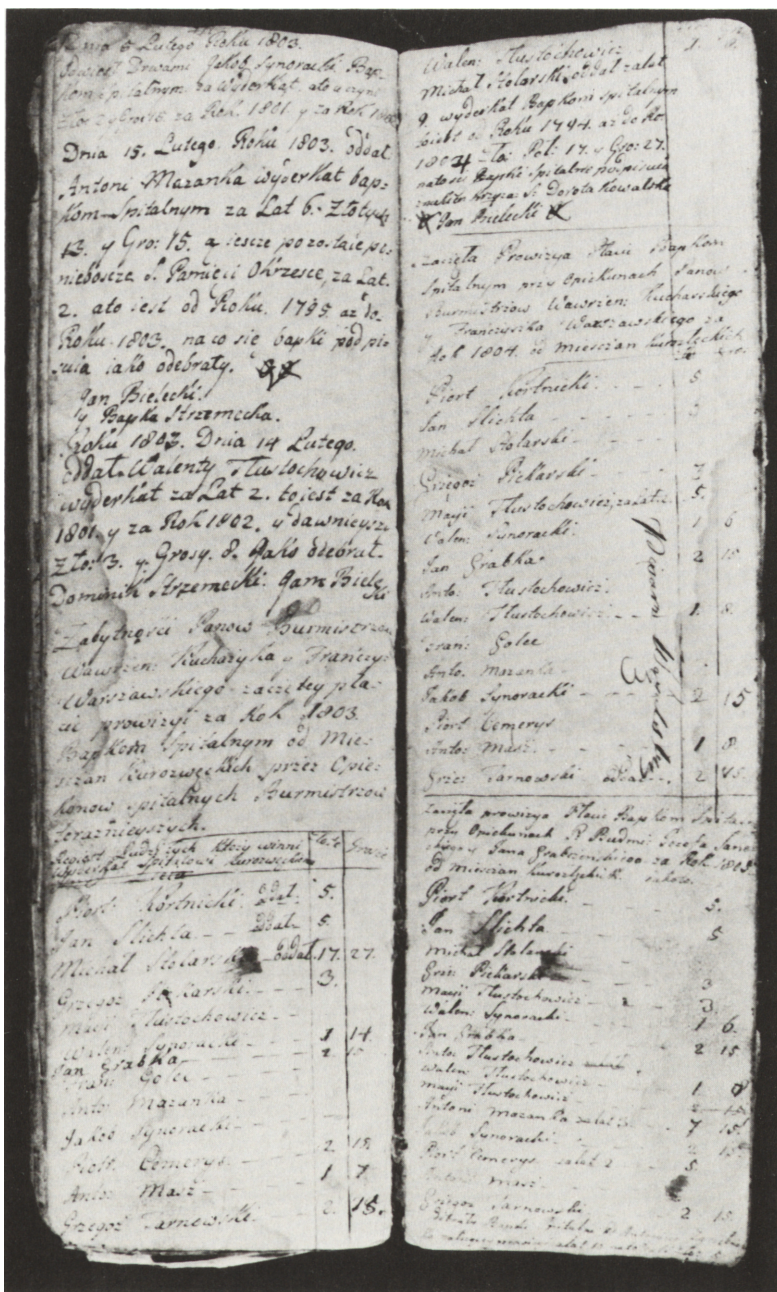 Dnia 5 Lutego Roku 1803.
Jakob Synoracki Bap-
kom Spitalnym za wyderkat, ato
za Rok. 1801. y za Rok
Dnia 15. Lutego. Roku 1803. oddał
Antoni Mazanka wyderkat bap-
kom Spitalnym za Lat 6. Złotych
13. y Gro: 15. a iescze pozostaie po
niebosczce S. Pamięci Okrzesce, za Lat.
2. ato iest od Roku. 1795. aż do.
Roku 1803. na co się bapki podpi-
suią iako odebrały.
Jan Bielecki.
y Bapka Strzemecka.
Roku 1803. Dnia 14 Lutego.
Oddał Walenty Tłustochowicz
wyderkat za Lat 2. to jest za Rok
1801. y za Rok 1802. y dawnieysze
Zło: 3. y. Grosy. 8. Jako odebrał.
Dominik Strzemecki. Jam Bielecki
Zabytności Panow Burmistrzow
Wawrzen: Kucharzyka y Franczys:
Warszawskiego zaczętey pła-
cić prowizyi za Rok 1803.
Bapkom Spitalnym od Mie-
sczan Kurozwęckich przez Opie-
konow spitalnych Burmistrzow
teraznieyszych.
Regiestr Ludzi tych ktorzy winni Złote Grosze
Wyderkat Spitalowi Kurozwęckiemu
Piotr. Kortnicki. oddał. 5.
Jan Slichta oddał 5.
Michał Stolarski oddał. 17. 27.
Grzegoz Piekarski 3.
Maci Tłustochowicz
Walen: Synoracki. 1 14
Jan Grabka 2. 15
Fran: Golec
Anto: Mazanka
Jakob Synoracki
Piotr. Cemerys 2. 15.
Anto: Masz 1 7.
Grzegoz Tarnowski. 2. 15.
Walen: Tłustochowicz 1. 8.
Michał Stolarski oddał za lat
9. wyderkat Bapkom spitalnym
od Roku 1794. aż do Ro.
1804 Zło: Pol: 17. y Gro: 27.
na to się Bapki Spitalne podpisuią
znakiem krzyza S. Dorota Kowalska
Jan Bielecki
Zaczęta Prowizya Płacić Bapkom
Spitalnym przy Opiekunach Panow
Burmistrzow Wawrzen: Kucharskiego
y Franczyszka Warszawskiego za
Rok 1804. od miesczan kurozwęckich
Piotr Kortnicki 5
Jan Slichta 5
Michał Stolarski
Grzegoz Piekarski 3
Mayji Tłustochowicz 5.
Walen: Synoracki. 1 6
Jan Grabka 2 15
Anto: Tłustochowicz.
Walen: Tłustochowicz 1. 8.
Fran: Golec
Anto. Mazanka
Jakob Synoracki 2 15
Piotr Cemerys
Anto: Masz 1 8
Grzez Tarnowski oddał 2 15.
Zaczęta prowizya Płacić Bapkom Spital
przy Opiekunach
Jana Grabzenskiego za Rok 1805
od miesczan
Piotr Kortnicki 5.
Jan Slichta 5
Michał Stolarski
Grze: Piekarski 3
Mayji Tłustochowicz 3.
Walen: Synoracki 1 6.
Jan Grabka 2 15
Anto: Tłustochowicz
Walen Tłustochowicz 1 8
Mayji Tłustochowicz 2 15
Antoni Mazanka 7 15
Synoracki 15
Piotr Cemerys 5.
Masz
Grzegoz Tarnowski 2 15.